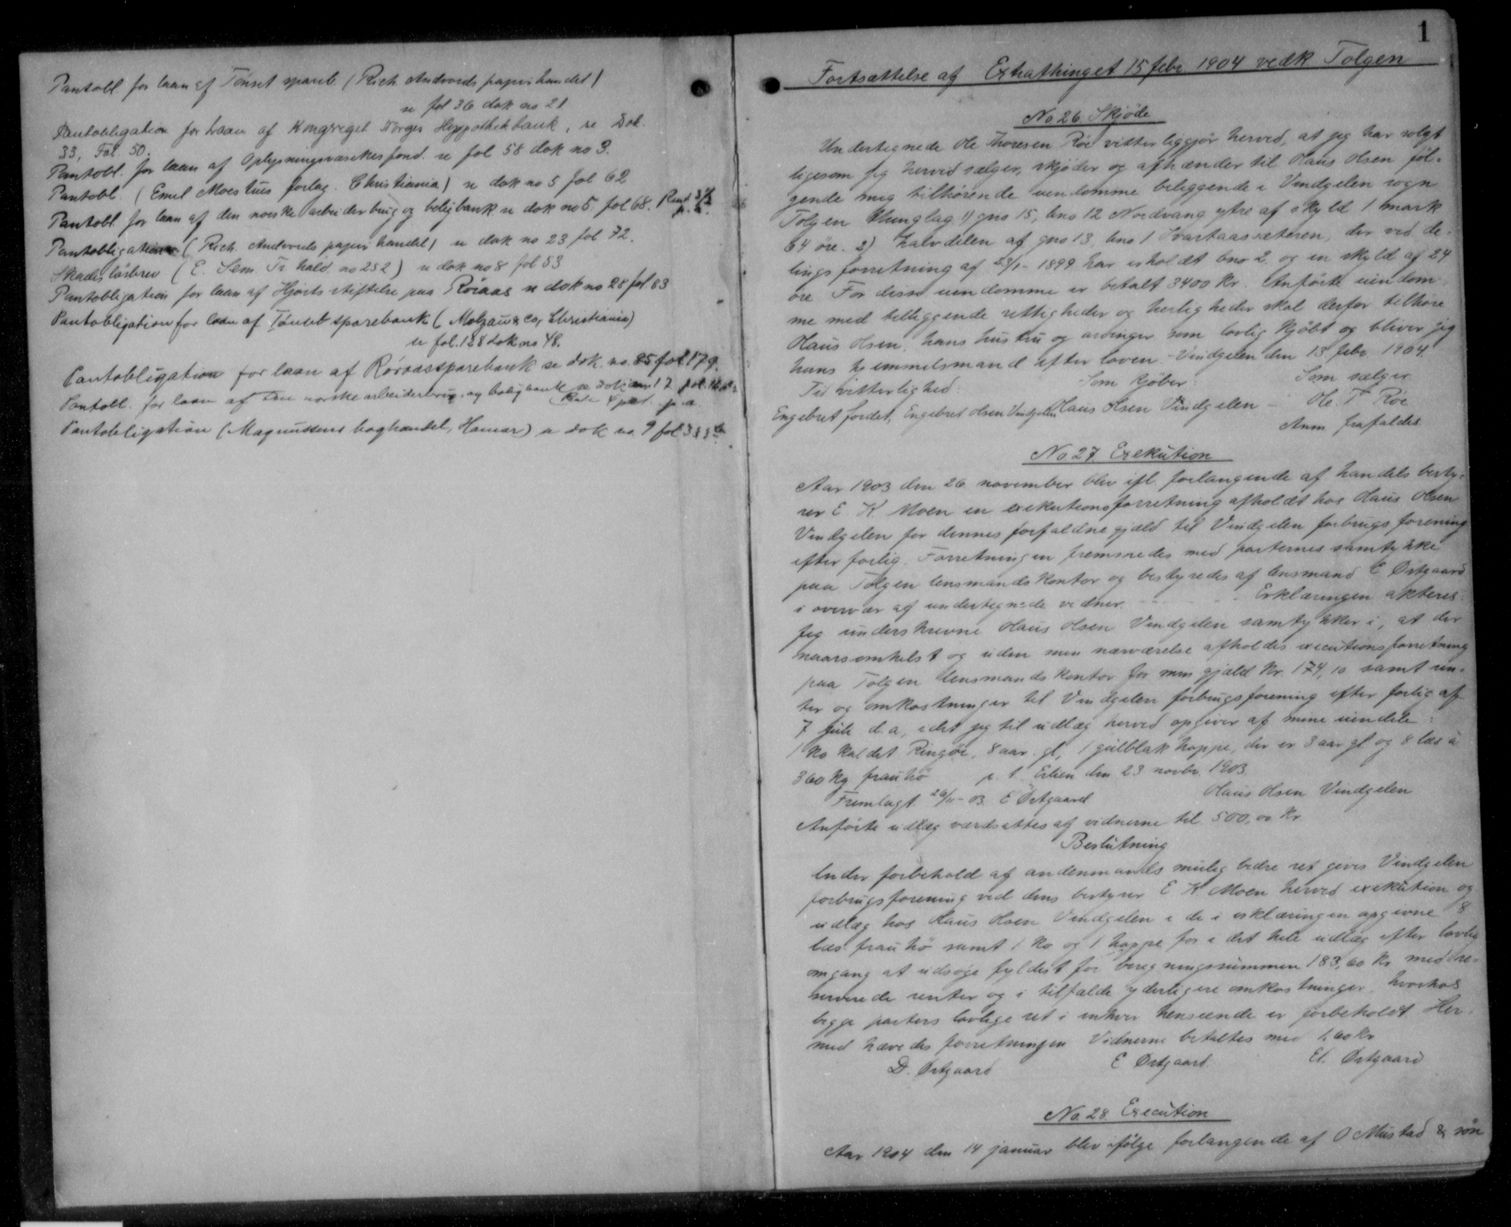 Pantobl for laan af Tønset spareb (Rich Andvords papirhandel)
se fol 36 dok no 21
Pantobligation for laan af Kongeriget Norges Hypothekbank, se Dok.
33, Fol 50.
Pantobl. for laan af Oplysningsvæsenets fond se fol 58 dok no 3.
Pantobl (Emil Moestues forlag. Christiania) se dok no 5 fol 62
Pantobl for laan af den norske arbeiderbrug og boligbank se dok no 5 fol 68. Rent 3½ p.a.
Pantobligation (Rich. Andvords papirhandel) se dok no 23 fol 72.
Skadesløsbrev (E. Sem Fr.hald no 252) se dok no 8 fol 53
Pantobligation for laan af Hjorts stiftelse paa Røraas se dok no 28 fol 83
Pantobligation for laan af Tønset sparebank (Motzau & Co, Christiania)
se fol. 158 dok no 48.
Pantobligation for laan af Rørossparebank se dok. no. 25 fol 179.
Pantobl. for laan af den norske arbeiderbrug og boligbank se dok no 17 fol
Rente 4 pct. p.a.
Pantobligation (Magnussens boghandel, Hamar) se dok no. 9 fol 333
1
Fortsættelse af Extrathinget 15 febr 1904 vedk Tolgen
No 26 Skjøde
Undertegnede Ole Thoresen Røe vitterliggjør herved, at jeg har solgt
ligesom jeg herved sælger, skjøder og afhænder til Haus Olsen føl-
gende mig tilhørende eiendomme beliggende i Vindgelen sogn
Tolgen thinglag 1) gno 15, bno 12 Nordvang ytre af skyld 1 mark
64 øre. 2) Halvdelen af gno 13, bno 1 Kvartaassæteren, der ved de-
lingsforretning af 25/1 - 1899 har erholdt bno 2 og en skyld af 24
øre For disse eiendomme er betalt 3400 Kr. Anførte eiendom-
me med tilliggende rettigheder og herligheder skal derfor tilhøre
Haus Olsen, hans hustru og arvinger som lovlig kjøbt og bliver jeg
hans hjemmelsmand efter loven - Vindgelen den 13 febr. 1904
Til vitterlighed: Som kjøber: Som sælger
Engebret Jordet, Engebret Olsen Vindgelen Haus Olsen Vindgelen - Ole T Røe
Anm frafaldes
No 27 Exekution
Aar 1903 den 26 november blev ifl. forlangende af handelsbesty-
rer E K Moen en exekutionsforretning afholdt hos Haus Olsen
Vindgelen for dennes forfaldne gjæld til Vindgelen forbrugsforening
efter forlig. Forretningen fremmedes med parternes samtykke
paa Tolgen lensmandskontor og bestyredes af lensmand E Østgaard
i overvær af undertegnede vidner - - - - - Erklæringen akteres:
Jeg underskrevne Haus Olsen Vindgelen samtykker i, at der
naarsomhelst og uden min nærværelse afholdes executionsforretning
paa Tolgen lensmandskontor for min gjæld Kr 174,10 samt ren-
ter og omkostninger til Vindgelen forbrugsforening efter forlig af
7 juli d.a, idet jeg til udlæg herved opgiver af mine eiendele:
1 ko kaldet Ringøi, 8 aar gl, 1 gulblak hoppe, der er 3 aar gl og 8 læs à
360 kg frauhø p. t. Erlien den 23 novbr. 1903
Fremlagt 26/11-03 E Østgaard Haus Olsen Vindgelen
Anførte udlæg værdsattes af vidnerne til 500,00 Kr
Beslutning
Under forbehold af andenmands mulig bedre ret gives Vindgelen
forbrugsforening ved dens bestyrer E K Moen herved exekution og
udlæg hos Haus Olsen Vindgelen i de i erklæringen opgivne 8
læs frauhø samt 1 ko og 1 hoppe for i det hele udlæg efter lovlig
omgang at udsøge fyldest for beregningssummen 183,60 Kr med re-
serverede renter og i tilfælde yderligere omkostninger. hvorhos
begge parters lovlige ret i enhver henseende er forbeholdt Her-
med hævedes forretningen Vidnerne betaltes med 1,60 kr
D. Østgaard E Østgaard. El. Østgaard
No 28 Execution
Aar 1904 den 14 januar blev ifølge forlangende af O Mustad & søn